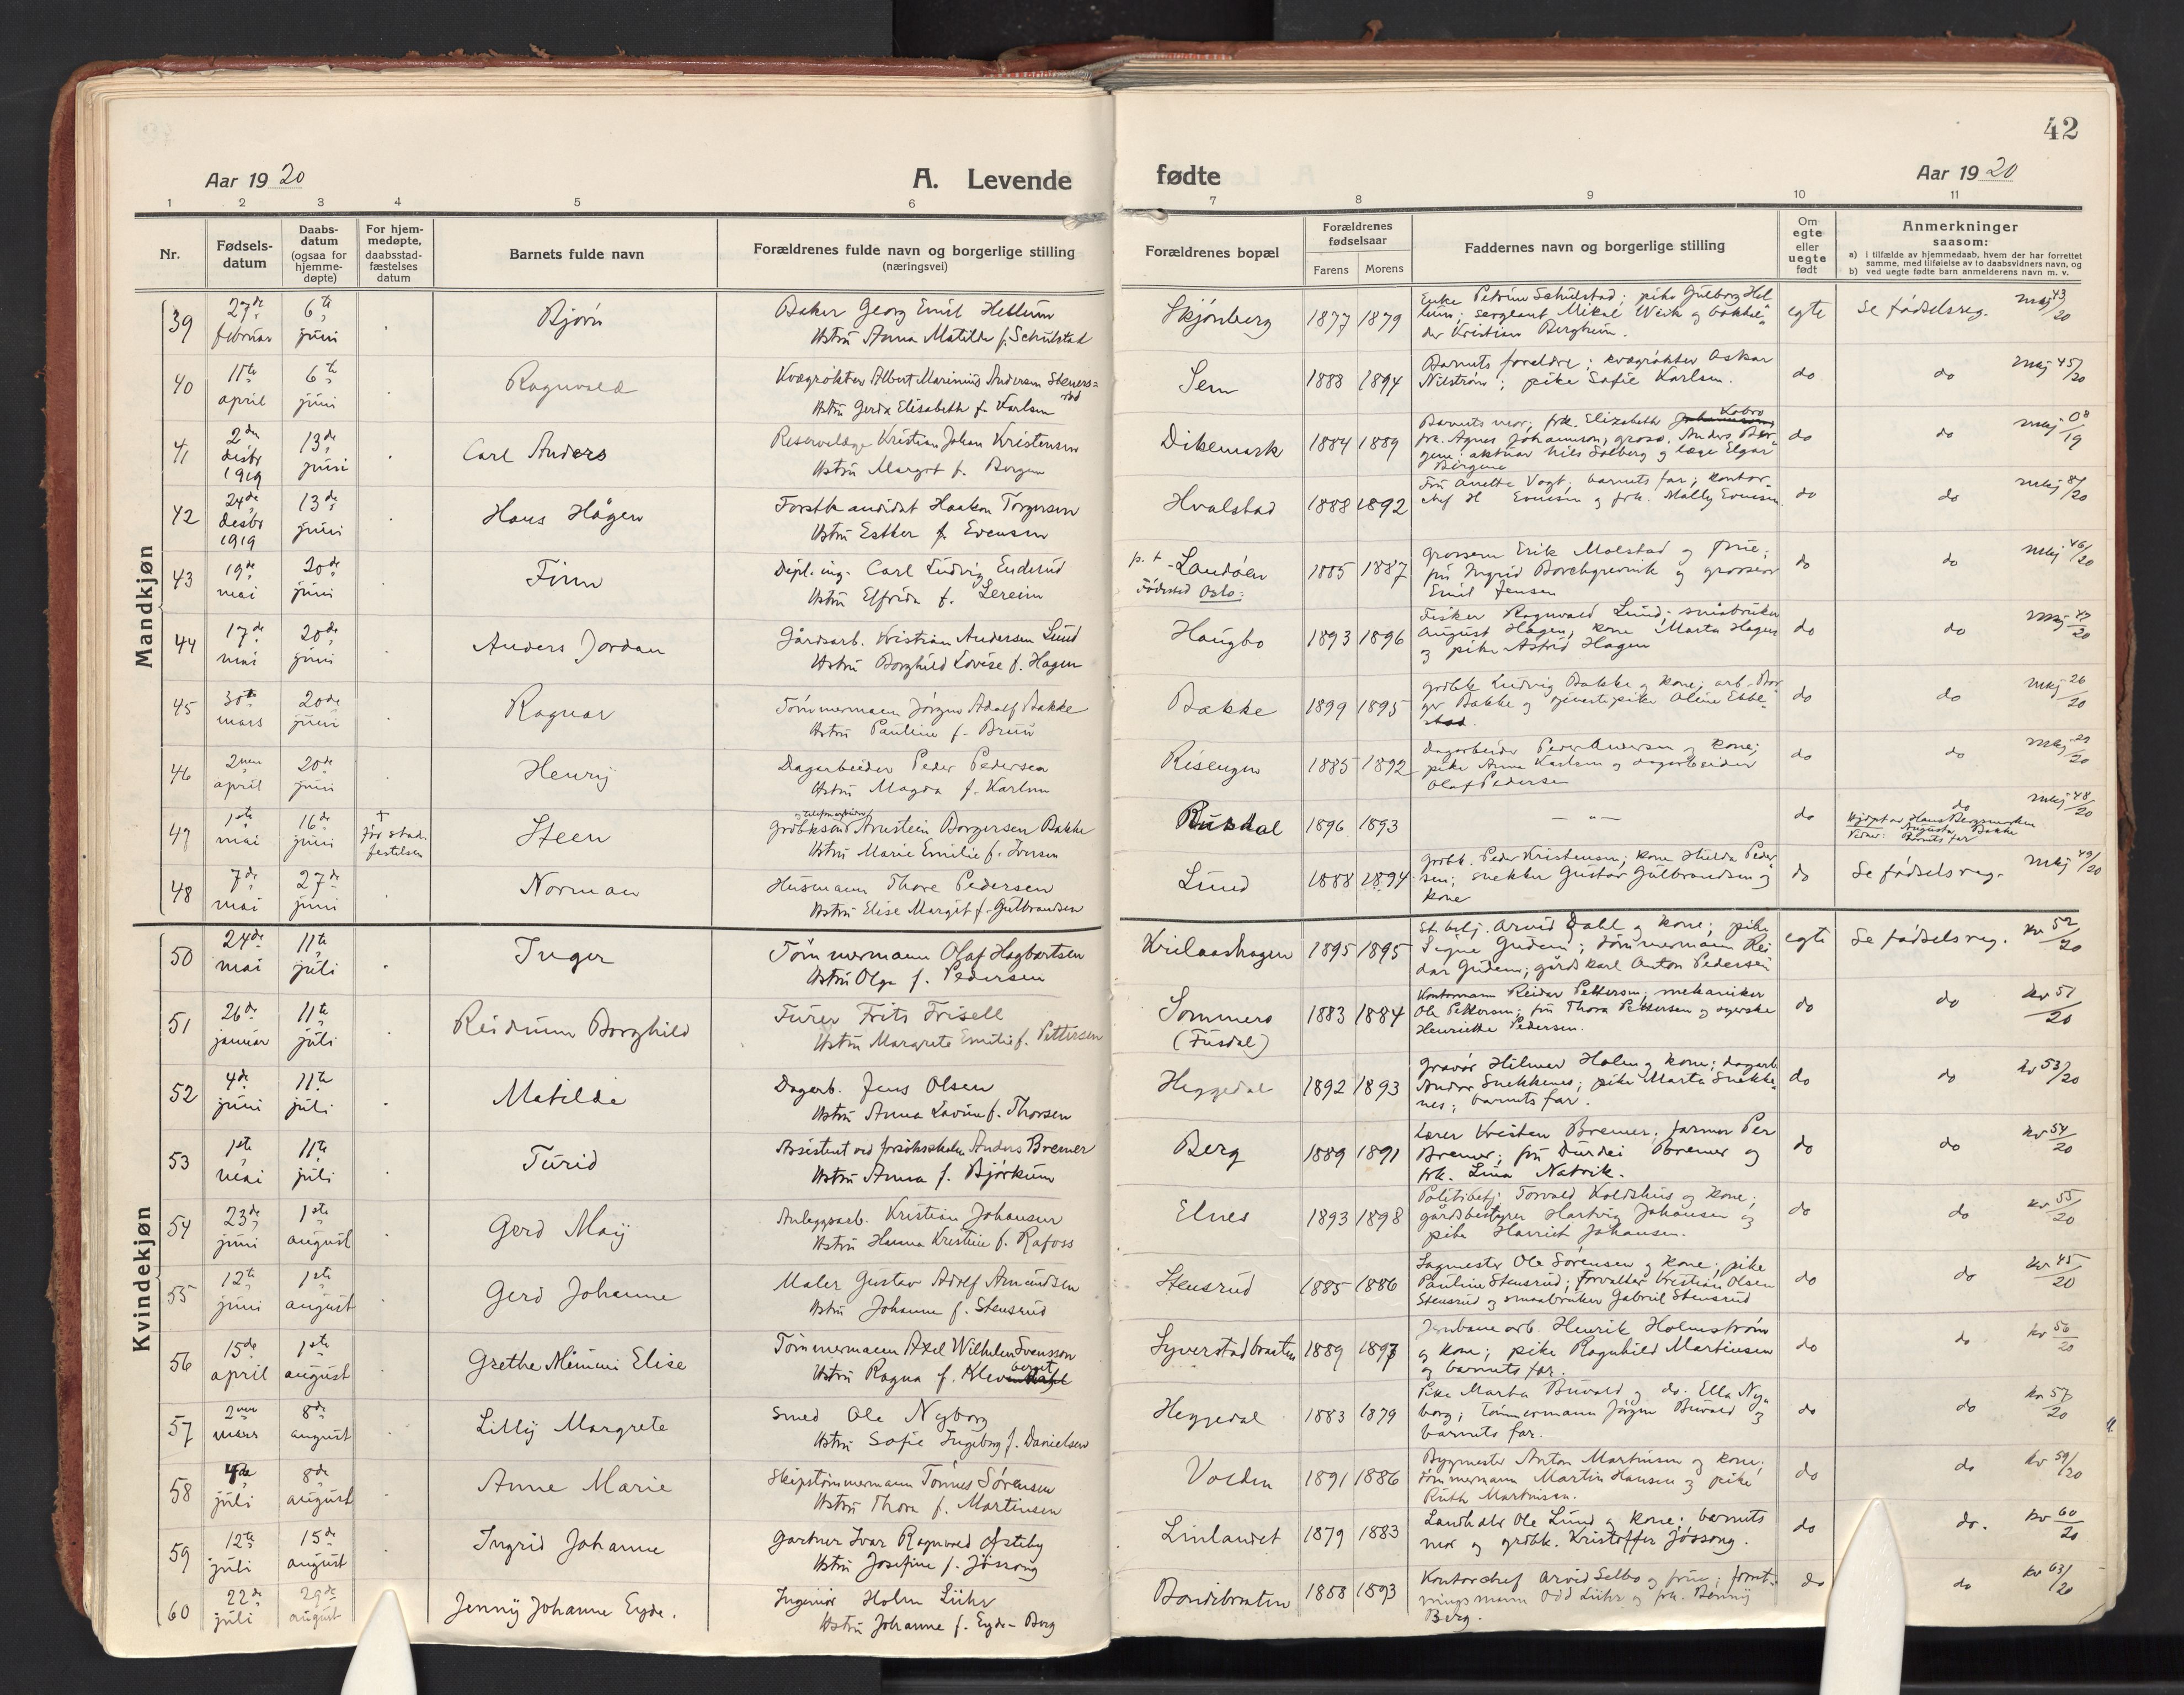 42
Aar 1920
A. Levende
fødte
Aar 1920
1 2 3 4 5 6 7 8 9 10 11
Nr.
Fødsels-
datum
Daabs-
datum
(ogsaa for
hjemme-
døpte)
For hjem-
medøpte,
daabsstad-
fæstelses
datum
Barnets fulde navn
Forældrenes fulde navn og borgerlige stilling
(næringsvei)
Forældrenes bopæl
Forældrenes
fødselsaar
Farens Morens
Faddernes navn og borgerlige stilling
Om
egte
eller
uegte
født
Anmerkninger
saasom:
a) i tilfælde av hjemmedaab, hvem der har forrettet
samme, med tilføielse av to daabsvidners navn, og
b) ved uegte fødte barn anmelderens navn m. v.
Mandkjøn
39 27de februar 6te juni Bjørn
Baker Georg Emil Hellum
Hstru Anna Matilde f. Schulstad
Skjønberg 1877 1879
Enke Petrine Schulstad; pike Gulborg Hel-
lum; sergeant Mikal Wiik og bokhol-
der Kristian Berghum.
egte Se fødselsreg. mkj 43/20
40 11te april 6te juni Ragnvald
Kvægrøkter Albert Marinius Andersen Steners-
rød
Hstru Gerda Elisabeth f. Karlsen
Sem 1888 1894
Barnets foreldre; kvægrøkter Oskar
Nilstrøm; pike Sofie Karlsen.
do do mkj 45/20
41 2den desbr 1919 13de juni Carl Anders
Reservelæge Kristian Johan Kristensen
Hstru Margit f. Bergene
Dikemark 1884 1889
Barnets mor; frk. Elizabeth
frk. Agnes Johannson; gross. Anders Ber-
gene, aktuar Nils Solberg og læge Elgar
Bergene
do do mkj 08/19
42 24de desbr 1919 13de juni Hans Hågen
Forstkandidat Haakon Torgersen
Hstru Esther f. Evensen
Hvalstad 1888 1892
Fru Anette Vogt; barnets far; kontor-
chef H Evensen og frk. Molly Evensen.
do do mkj 84/20
43 19de mai 20de juni Finn
Dipl. ing. Carl Ludvig Enderud
Hstru Elfrida f. Lereim
p. t. Landøen
Fødested Oslo:
1885 1887
Grosserer Erik Molstad og frue;
fru Ingrid Borchgrevink og grosserer
Emil Jensen
do do mkj 46/20
44 17de mai 20de juni Anders Jordan
Gårdsarb. Kristian Andersen Lund
Hstru Borghild Lovise f. Hagen
Haugbo 1893 1896
Fisker Ragnvald Lund; småbruker
August Hagen, kone Marta Hagen
og pike Astrid Hagen
do do mkj 47/20
45 30te mars 20de juni Ragnar
Tømmermann Jørgen Adolf Bakke
Hstru Pauline f. Bruu
Bakke 1899 1895
grdbk Ludvig Bakke og kone; arb. Bor-
ger Bakke og tjenestepike Oline Ebbe-
stad.
do do mkj 26/20
46 2nen april 20de juni Henry
Dagarbeider Peder Pedersen
Hstru Magda f. Karlsen
Risengen 1885 1892
Dagarbeider Peder Andersen og kone;
pike Anna Karlsen og dagarbeider
Olaf Pedersen
do do mkj 29/20
47 1ste mai 16de juni før stad-
festelsen Steen
og telefonarbeider
Grdbksønn Arnstein Borgersen Bakke
Hstru Marie Emilie f. Iversen
Rusdal 1896 1893
— " —
do do mkj 48/20
Hjdøpt av Hans Bergsmarken
Vidner: Augusta Bakke
Barnets far
48 7de mai 27de juni Norman
Husmann Thore Pedersen
Hstru Elise Margit f. Gulbrandsen
Lund 1888 1894
Grdbk. Peder Kristensen; kone Hulda Peder-
sen; snekker Gustav Gulbrandsen og
kone
do Se fødselsreg. mkj 49/20
Kvindekjøn
50 24de mai 11te juli Inger
Tømmermann Olaf Hagbartsen
Hstru Olga f. Pedersen
Krielaashagen 1895 1895
St. betj. Arvid Dahl og kone; pike
Signe Gudem; tømmermann Rei-
dar Gudem; gårdskarl Anton Pedersen
egte Se fødselsreg. kv 52/20
51 26de januar 11te juli Reidunn Borghild
Furer Frits Frisell
Hstru Margrete Emilie f. Pettersen
Sommero
(Fusdal)
1883 1884
Kontormann Reidar Pettersen; mekaniker
Ole Pettersen; fru Thora Pettersen og syerske
Henriette Pedersen.
do do kv 51/20
52 4de juni 11te juli Matilde
Dagarb. Jens Olsen
Hstru Anna Lovine f. Thorsen
Heggedal 1892 1893
Gravør Hilmar Holm og kone; dagarb.
Andor Snekkenes; pike Marta Snekke-
nes; barnets far.
do do kv 53/20
53 1ste mai 11te juli Turid
Assistent ved forsøksskolen Anders Bremer
Hstru Anna f. Bjørkum
Berg 1889 1891
Lærer Kristen Bremer; farmer Per
Bremer; fru Durdei Bremer og
frk. Lina Natvik.
do do kv 54/20
54 23de juni 1ste august Gerd Maij
Anleggsarb. Kristian Johansen
Hstru Hanna Kristine f. Rafoss
Elnes 1893 1898
Politibetj. Torvald Koldshus og kone;
gårdsbestyrer Hartvig Johansen og
pike Harriet Johansen.
do do kv 55/20
55 12te juni 1ste august Gerd Johanne
Maler Gustav Adolf Amundsen
Hstru Johanne f. Stensrud
Stensrud 1885 1886
Sagmester Ole Sørensen og kone; pike
Pauline Stensrud; forvalter Kristian Olsen
Stensrud og smaabruker Gabriel Stensrud
do do kv 45/20
56 15de april 1ste august Grethe Mimmi Elise
Tømmermann Axel Wilhelm Svensson
Hstru Ragna f. Klev
Syverstadbraaten 1889 1897
Jernbanearb. Henrik Holmstrøm
og kone; pike Ragnhild Martinsen
og barnets far.
do do kv 56/20
57 2nen mars 8de august Lilly Margrete
Smed Ole Nyborg
Hstru Sofie Ingeborg f. Danielsen
Heggedal 1883 1879
Pike Marta Buvald og do. Ella Ny-
borg; tømmermann Jørgen Buvald og
barnets far.
do do kv 57/20
58 4de juli 8de august Anne Marie
Skipstømmermann Tønnes Sørensen
Hstru Thora f. Martinsen
Volden 1891 1886
Bygmester Anton Martinsen og kone;
tømmermann Martin Hansen og pike
Ruth Martinsen.
do do kv 59/20
59 12te juli 15de august Ingrid Johanne
Gartner Ivar Ragnvald Østeby
Hstru Josefine f. Jøssong
Linlandet 1879 1883
Landhdlr Ole Lund og kone; barnets
mor og grdbk. Kristoffer Jøssong.
do do. kv 60/20
60 22de juli 29de august Jenny Johanne Eyde.
Ingeniør Holm Lühr
Hstru Johanne f. Eyde-Berg
Bondibraaten 1888 1893
Kontorchef Arvid Selbo og frue; forret-
ningsmann Odd Lühr og frk. Benny
Berg.
do do kv 63/20